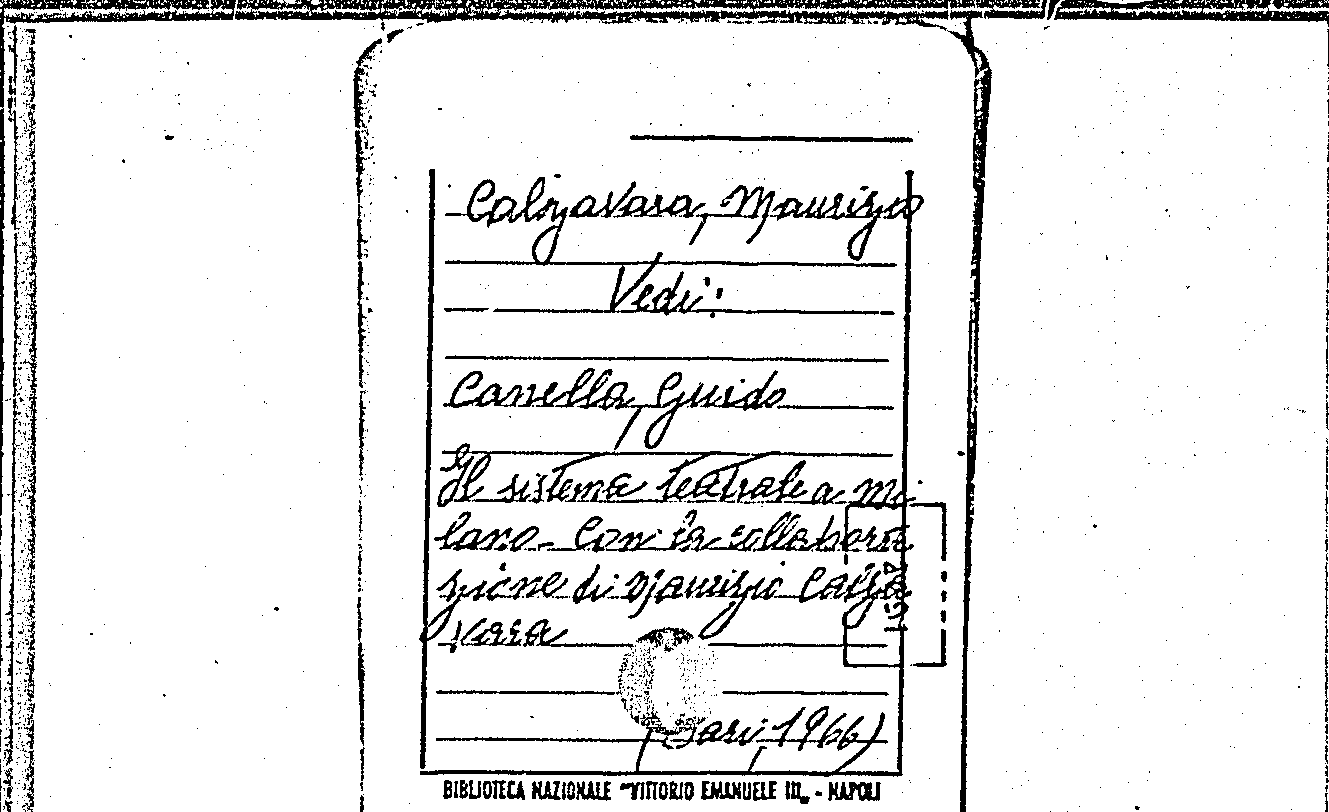 Calzavara, Maurizio
Vedi:
Canella, Guido
Il sistema teatrale a Mi
lano. Con la collabora
zione di Maurizio Calza
vara
(Bari, 1966)
BIBLIOTECA NAZIONALE "VITTORIO EMANUELE III„ - NAPOLI